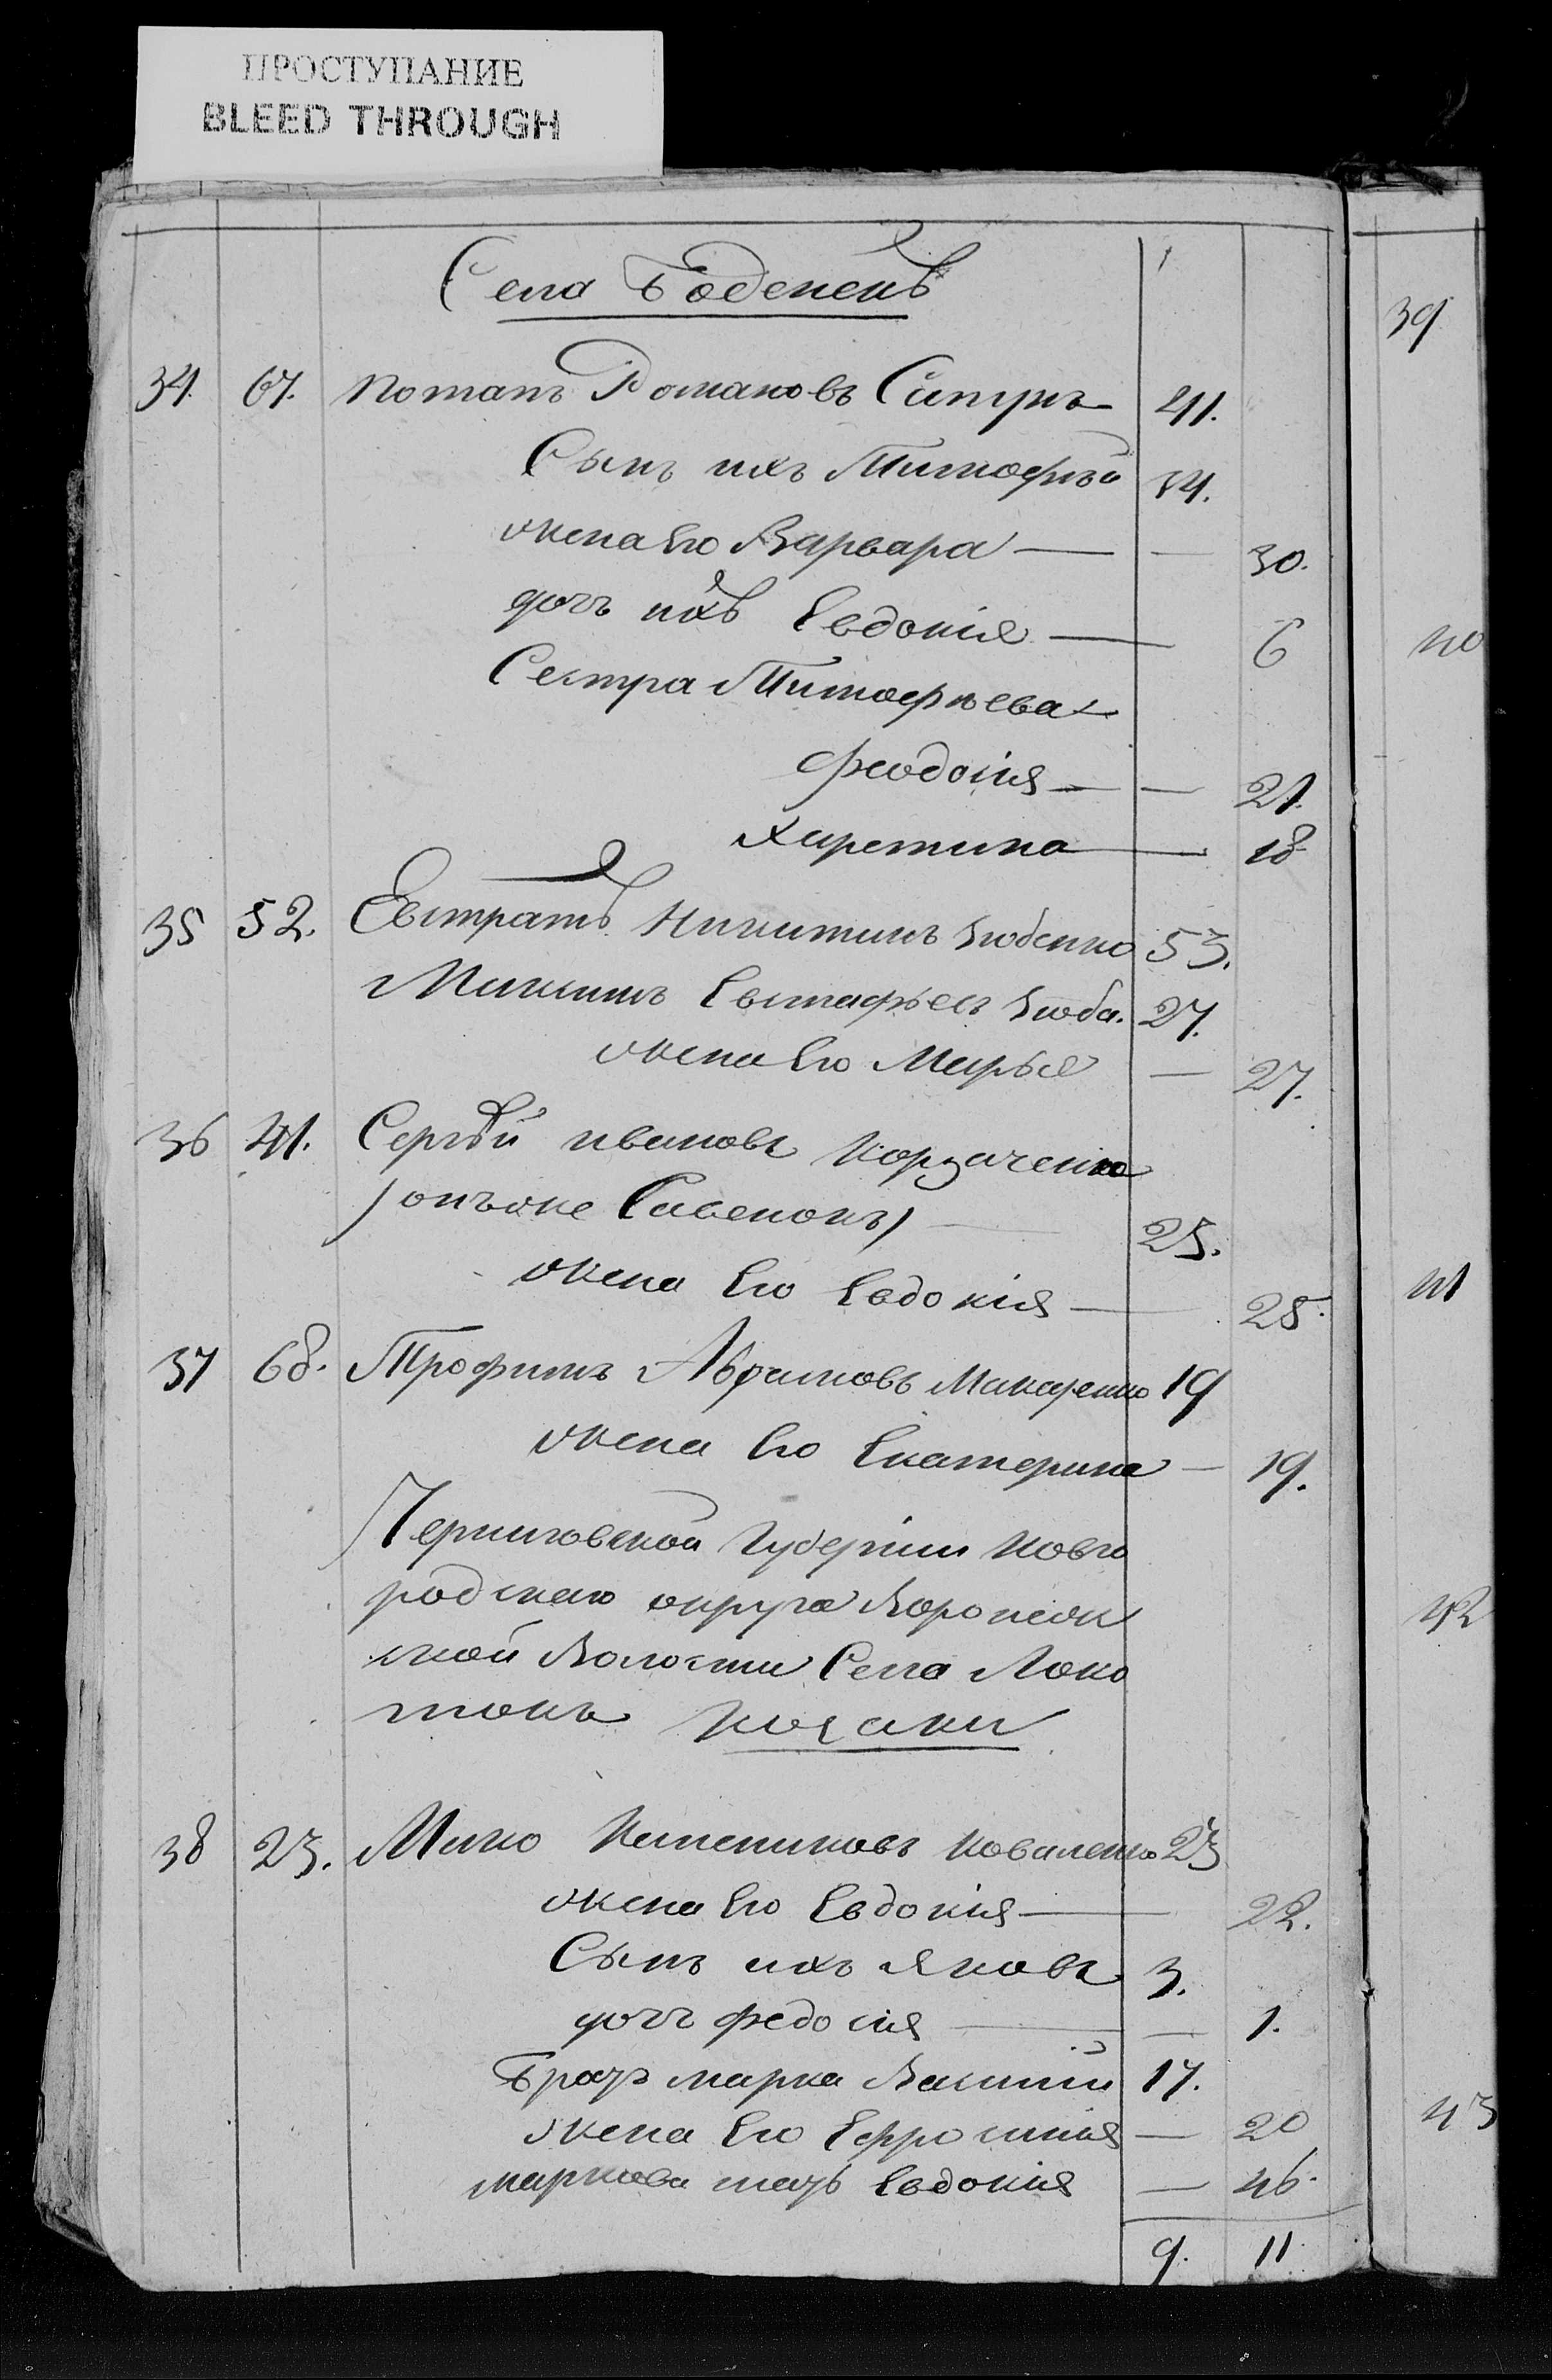 ПРОСТУПАНИЕ
BLEED THROUGH
Села Боденекъ
34. 67. Потапъ Романовъ Сипунъ 41.
Сынъ ихъ Тимофѣй 34.
жена Его Варвара — — 30.
дочь ихъ Евдокія — 6
Сестра Тимофѣева
Феодосія — — 21.
Харетина — 18
35 52. Евстратъ Никитинъ Зюбенко 53.
Евстафьевъ Зюба. 27.
жена Его Марья — 27.
36 41. Сергѣй Ивановъ Корзаченко
(онъже Савенокъ) 25.
жена Его Евдокія — 25.
37 68. Трофимъ Абрамовъ Макаренко 19
жена Его Екатерина — 19.
Черниговской Губерніи Новго
родскаго округа Воронеж
ской Волости Села Локо
токъ Козаки
38 23. Коваленко 23
жена Его Евдокія — 22.
Сынъ ихъ Яковъ 3.
дочь Федосія — — 1.
Братъ марка Василий 17.
жена Его Ефросинія — 20
маркова мать Евдокія — 46.
9. 11.
39
40
41
42
43